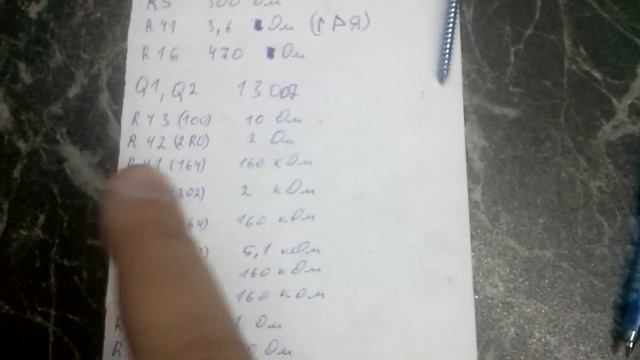 R5 300 Ом
R 41 3,6 Ом (1 РДЯ)
R 16 470 Ом
Q1, Q2 13007
R 43 (100) 10 Ом
R 42 (2R0) 2 Ом
R 41 (164) 160 кОм
202) 2 кОм
64) 160 кОм
) 5,1 кОм
160 кОм
160 кОм
R 1 Ом
R 0 Ом